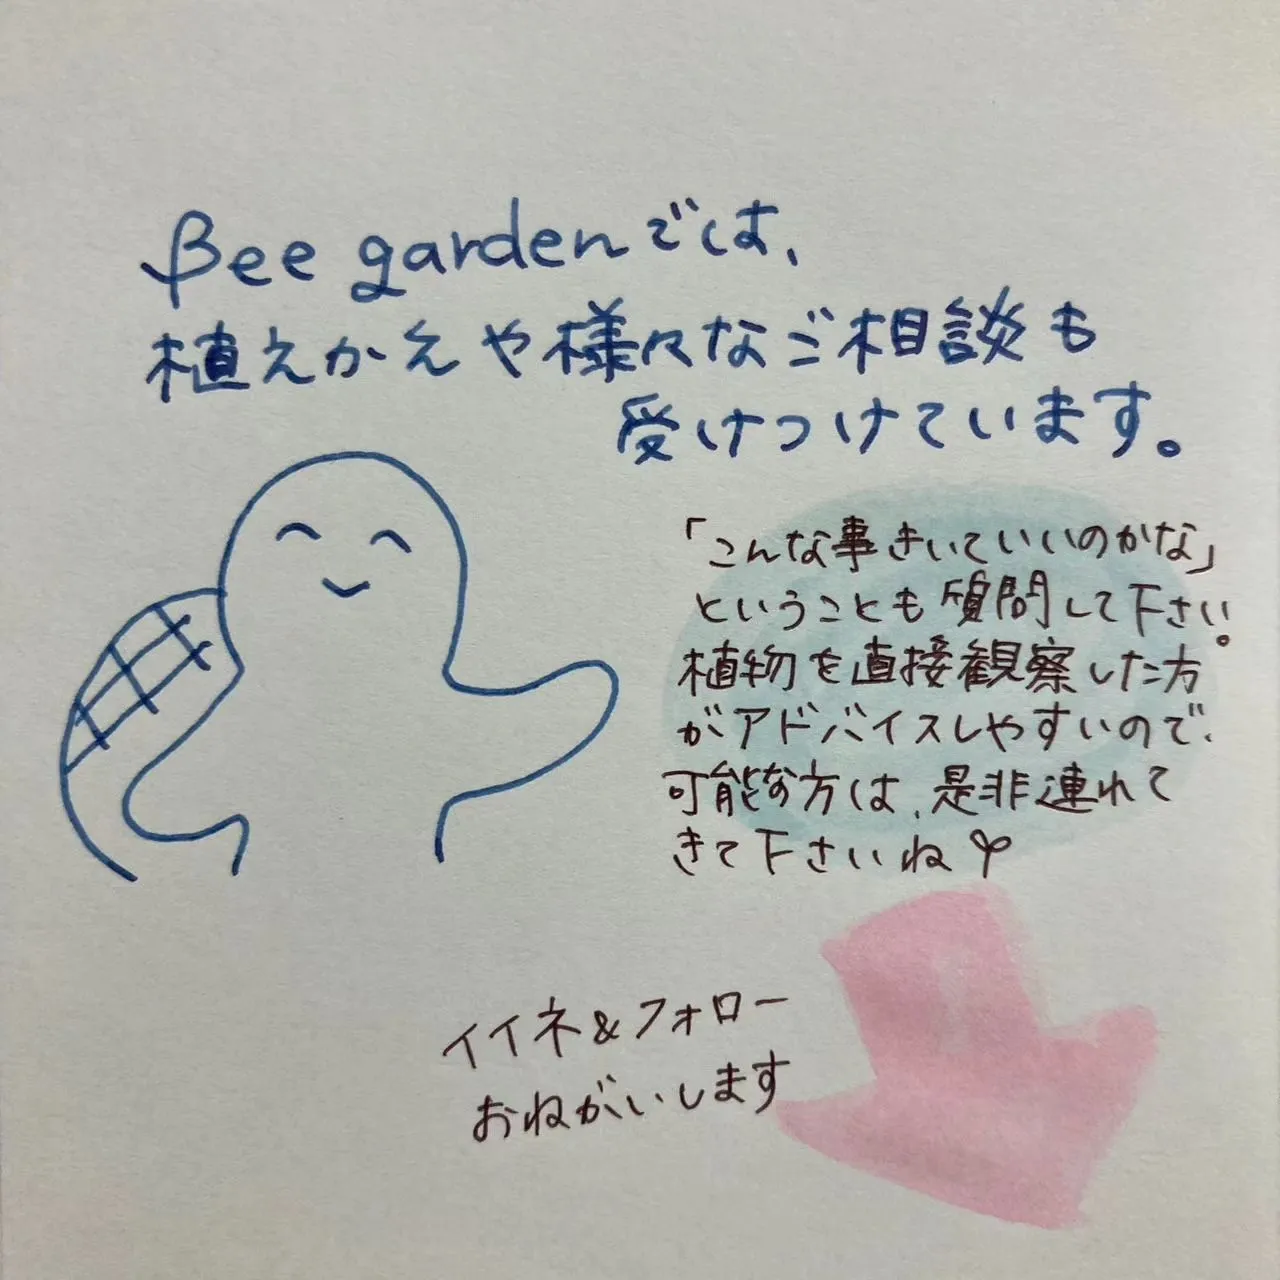 Bee gardenでは、
植えかえや様々なご相談も
受けつけています。
「こんな事きいていいのかな」
ということも質問して下さい。
植物を直接観察した方
がアドバイスしやすいので、
可能な方は、是非連れて
きて下さいね
イイネ&フォロー
おねがいします